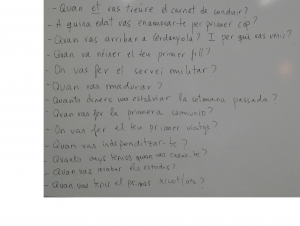 - Quan et vas treure el carnet de conduir?
- A quina edat vas enamorar-te per primer cop?
- Quan vas arribar a Cerdanyola? I per què vas venir?
- Quan va néixer el teu primer fill?
- On vas fer el servei militar?
- Quan vas madurar?
- Quants diners vau estalviar la setmana passada?
- Quan vas fer la primera comunió?
- On vas fer el teu primer viatge?
- Quan vas independitzar-te?
- Quants anys tenies quan vas casar-te?
- Quan vas acabar els estudis?
- Quan vas tenir el primer xicot/